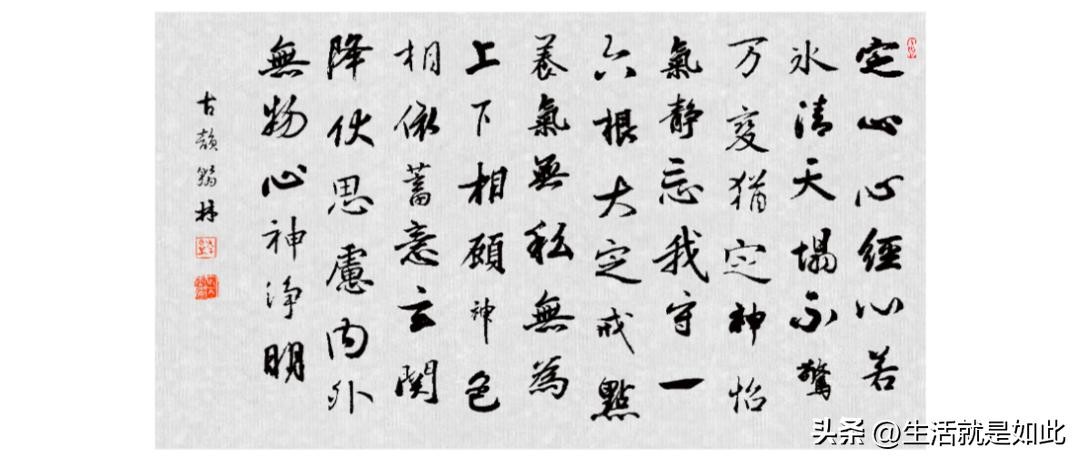 定心心經心若
氷清天塌不驚
万變猶定神怡
氣静忘我守一
六根大定戒點
養氣無私無為
上下相顧神色
相依蓄意玄関
降伏思慮内外
無物心神净明
古韻林
头条 @生活就是如此